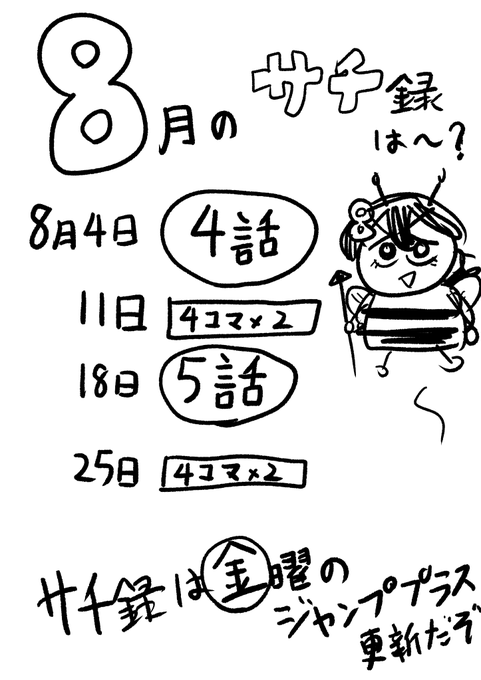 8月の
サチ録
は〜?
8月4日 4話
11日 4コマ×2
18日 5話
25日 4コマ×2
サチ録は金曜の
ジャンププラス
更新だぞ
8